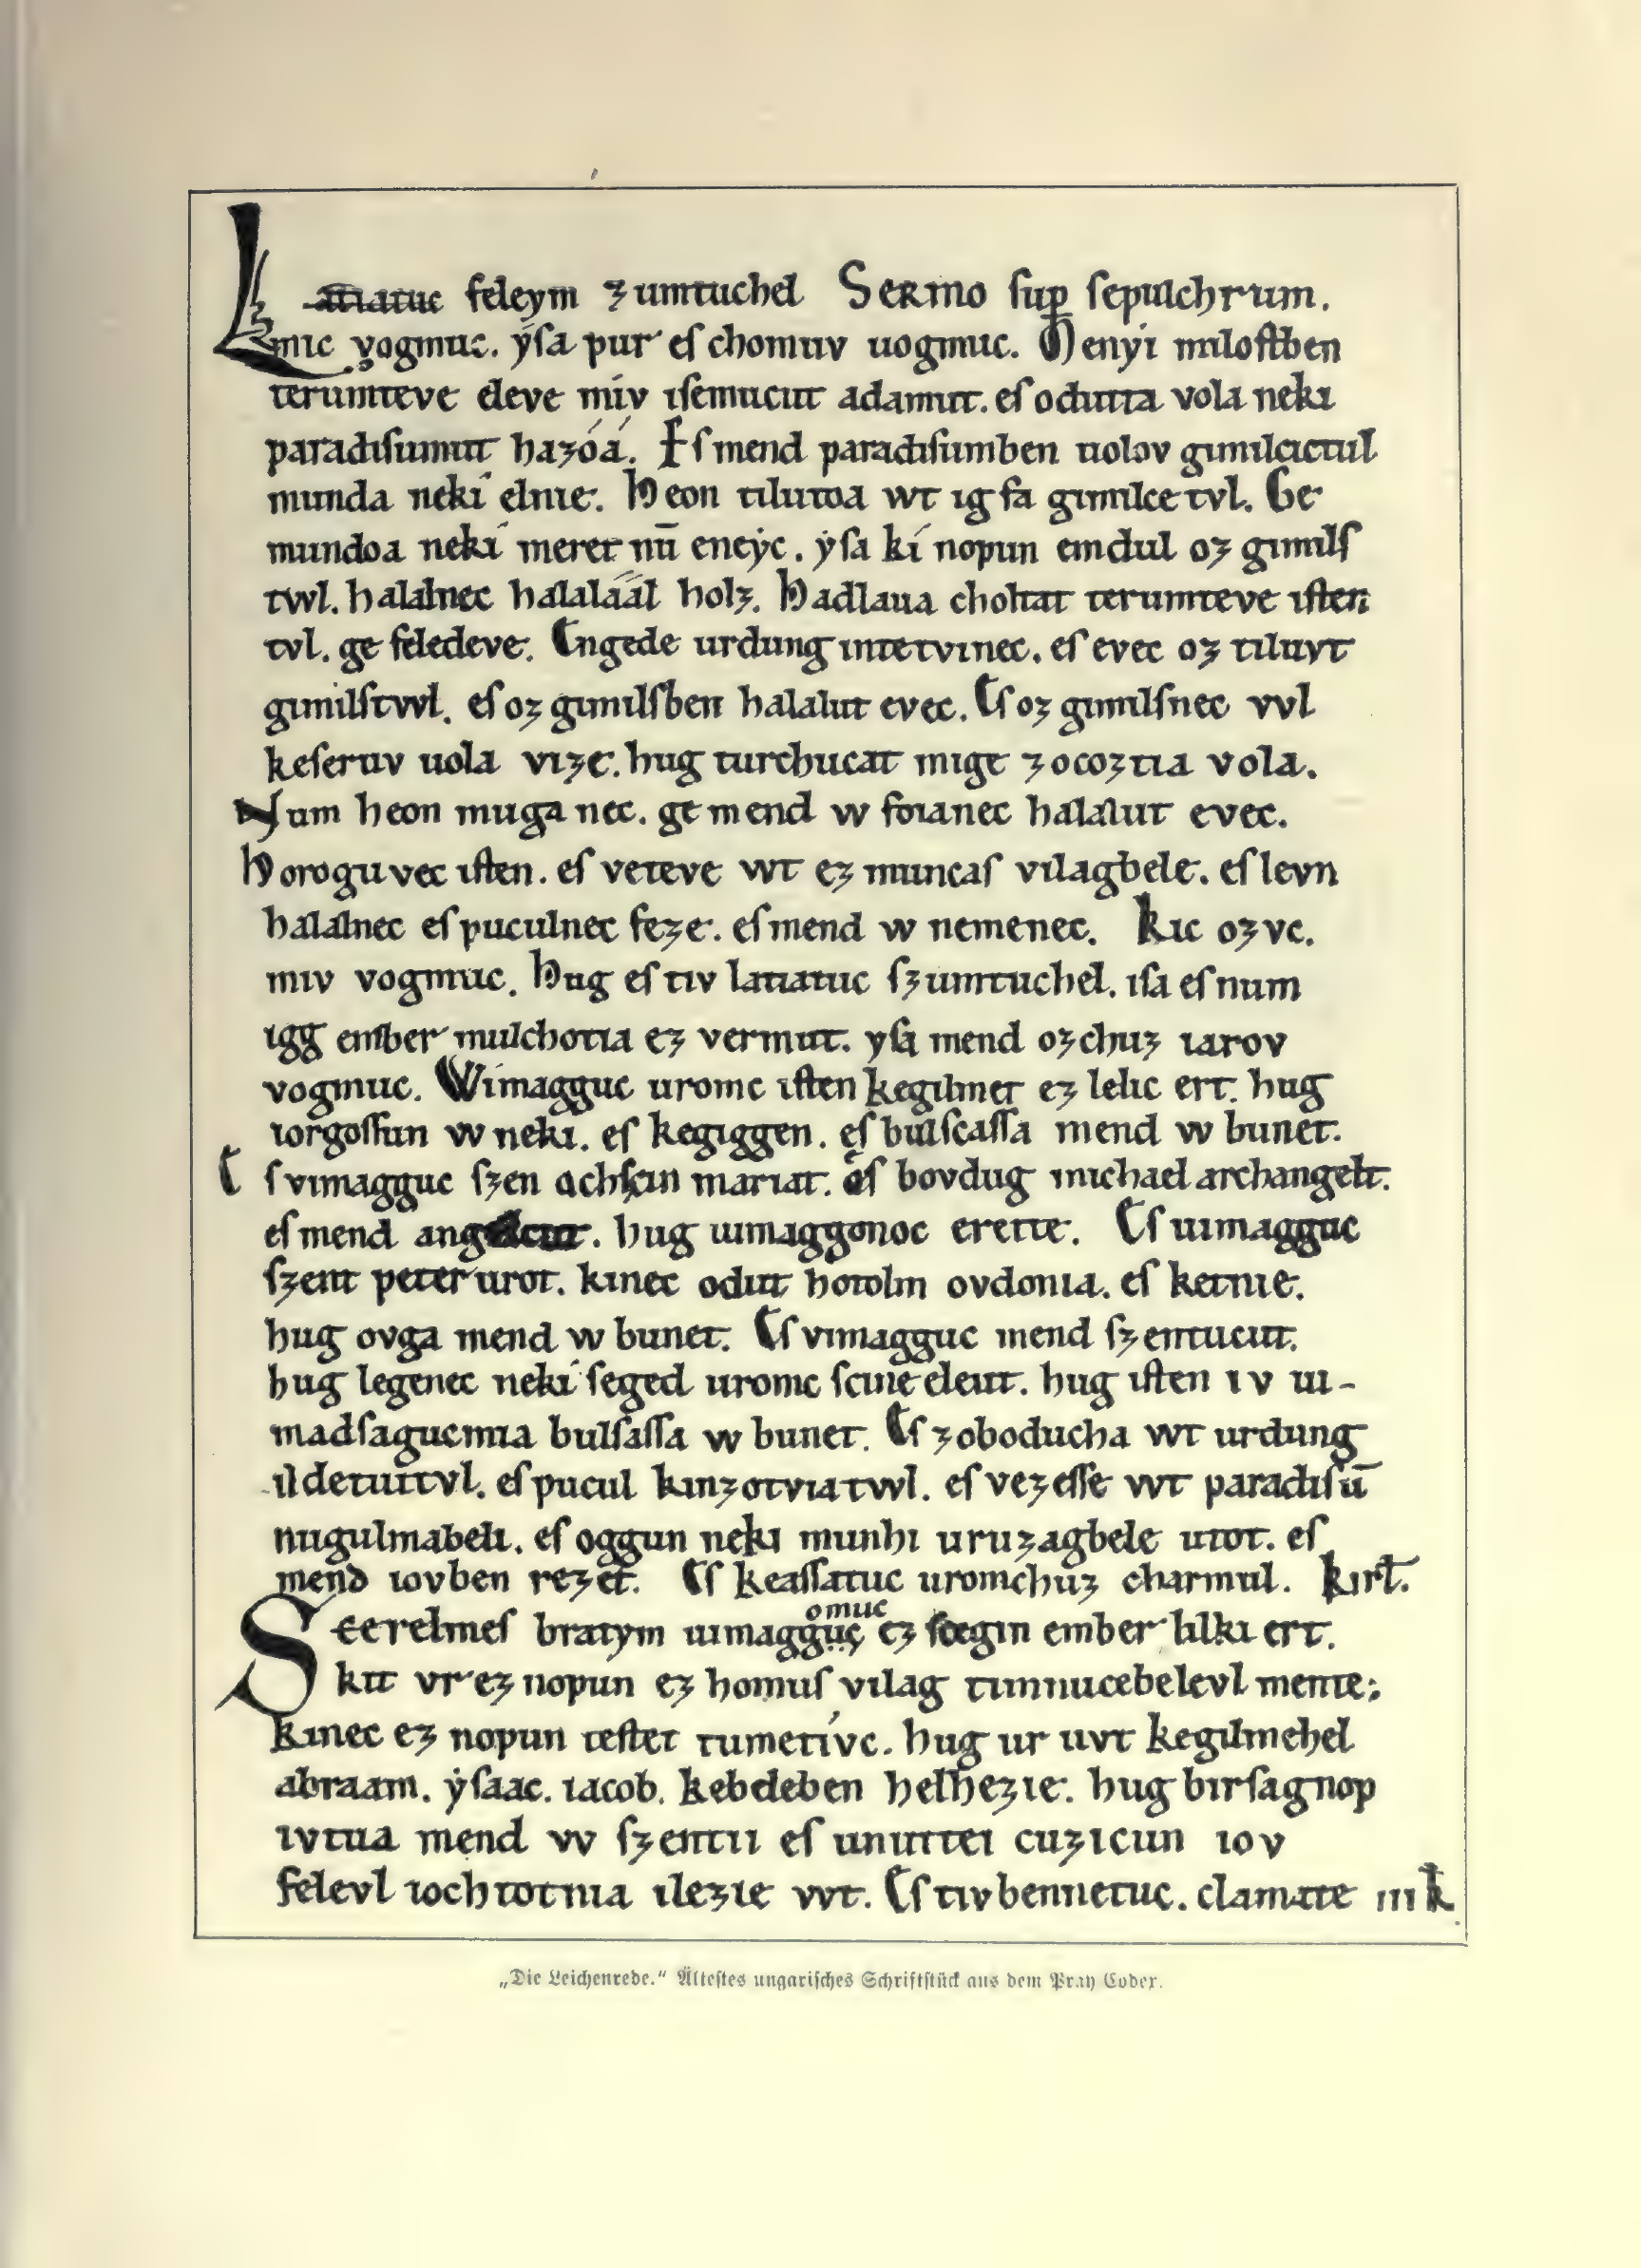 Latiatuc feleym zumtuchel Sermo ſup ſepulchrum.
mic vogmuc. yſa pur eſ chomuv uogmuc. Menyi miloſtben
terumteve eleve miv iſemucut adamut. eſ odutta vola neki
paradiſumut hazóá. Eſ mend paradiſumben uolov gimilcictul
munda neki elnie. Heon tilutoa wt ig fa gimilce tvl. Ge
mundoa neki meret nū eneyc. yſa ki nopun emdul oz gimilſ
twl. halalnec halaláál holz. Hadlaua choltat terumteve iſten
tvl. ge feledeve. Engede urdung intetvinec. eſ evec oz tiluvt
gimilſtwl. eſ oz gimilſben halalut evec. Eſ oz gimilſnec vvl
keſeruv uola vize. hug turchucat mige zocoztia vola.
Num heon muga nec. ge mend w foianec halalut evec.
Horoguvec iſten. eſ veteve wt ez muncaſ vilagbele. eſ levn
halalnec eſ puculnec feze. eſ mend w nemenec. Kic ozvc.
miv vogmuc. Hug eſ tiv latiatuc ſzumtuchel. iſa eſ num
igg ember mulchotia ez vermut. yſa mend ozchuz iarov
vogmuc. Wimagguc uromc iſten kegilmet ez lelic ert. hug
iorgoſſun w neki. eſ kegiggen. eſ bulſcaſſa mend w bunet.
Eſ vimagguc ſzen achſcin mariat. eſ bovdug michael archangelt.
eſ mend angelcut. hug uimaggonoc erette. Eſ uimagguc
ſzent peter urot. kinec odut hotolm ovdonia. eſ ketnie.
hug ovga mend w bunet. Eſ vimagguc mend ſzentucut.
hug legenec neki ſeged uromc ſcine eleut. hug iſten iv ui-
madſagucmia bulſaſſa w bunet. Eſ zoboducha wt urdung
ildetuitvl. eſ pucul kinzotviatwl. eſ vezeſſe wt paradiſū
nugulmabeli. eſ oggun neki munhi uruzagbele utot. eſ
mend iovben rezet. Eſ keaſſatuc uromchuz charmul. kirł.
omuc
Scerelmeſ bratym uimagguc ez ſcegin ember lilki ert.
kit vr ez nopun ez homuſ vilag timnucebelevl mente;
kinec ez nopun teſtet tumetívc. hug ur uvt kegilmehel
abraam. yſaac. iacob. kebeleben helhezie. hug birſagnop
ivtua mend vv ſzentii eſ unuttei cuzicun iov
felevl iochtotnia ilezie vvt. Eſ tiv bennetuc. clamate iii k
„Die Leichenrede.“ Älteſtes ungariſches Schriftſtück aus dem Pray Codex.